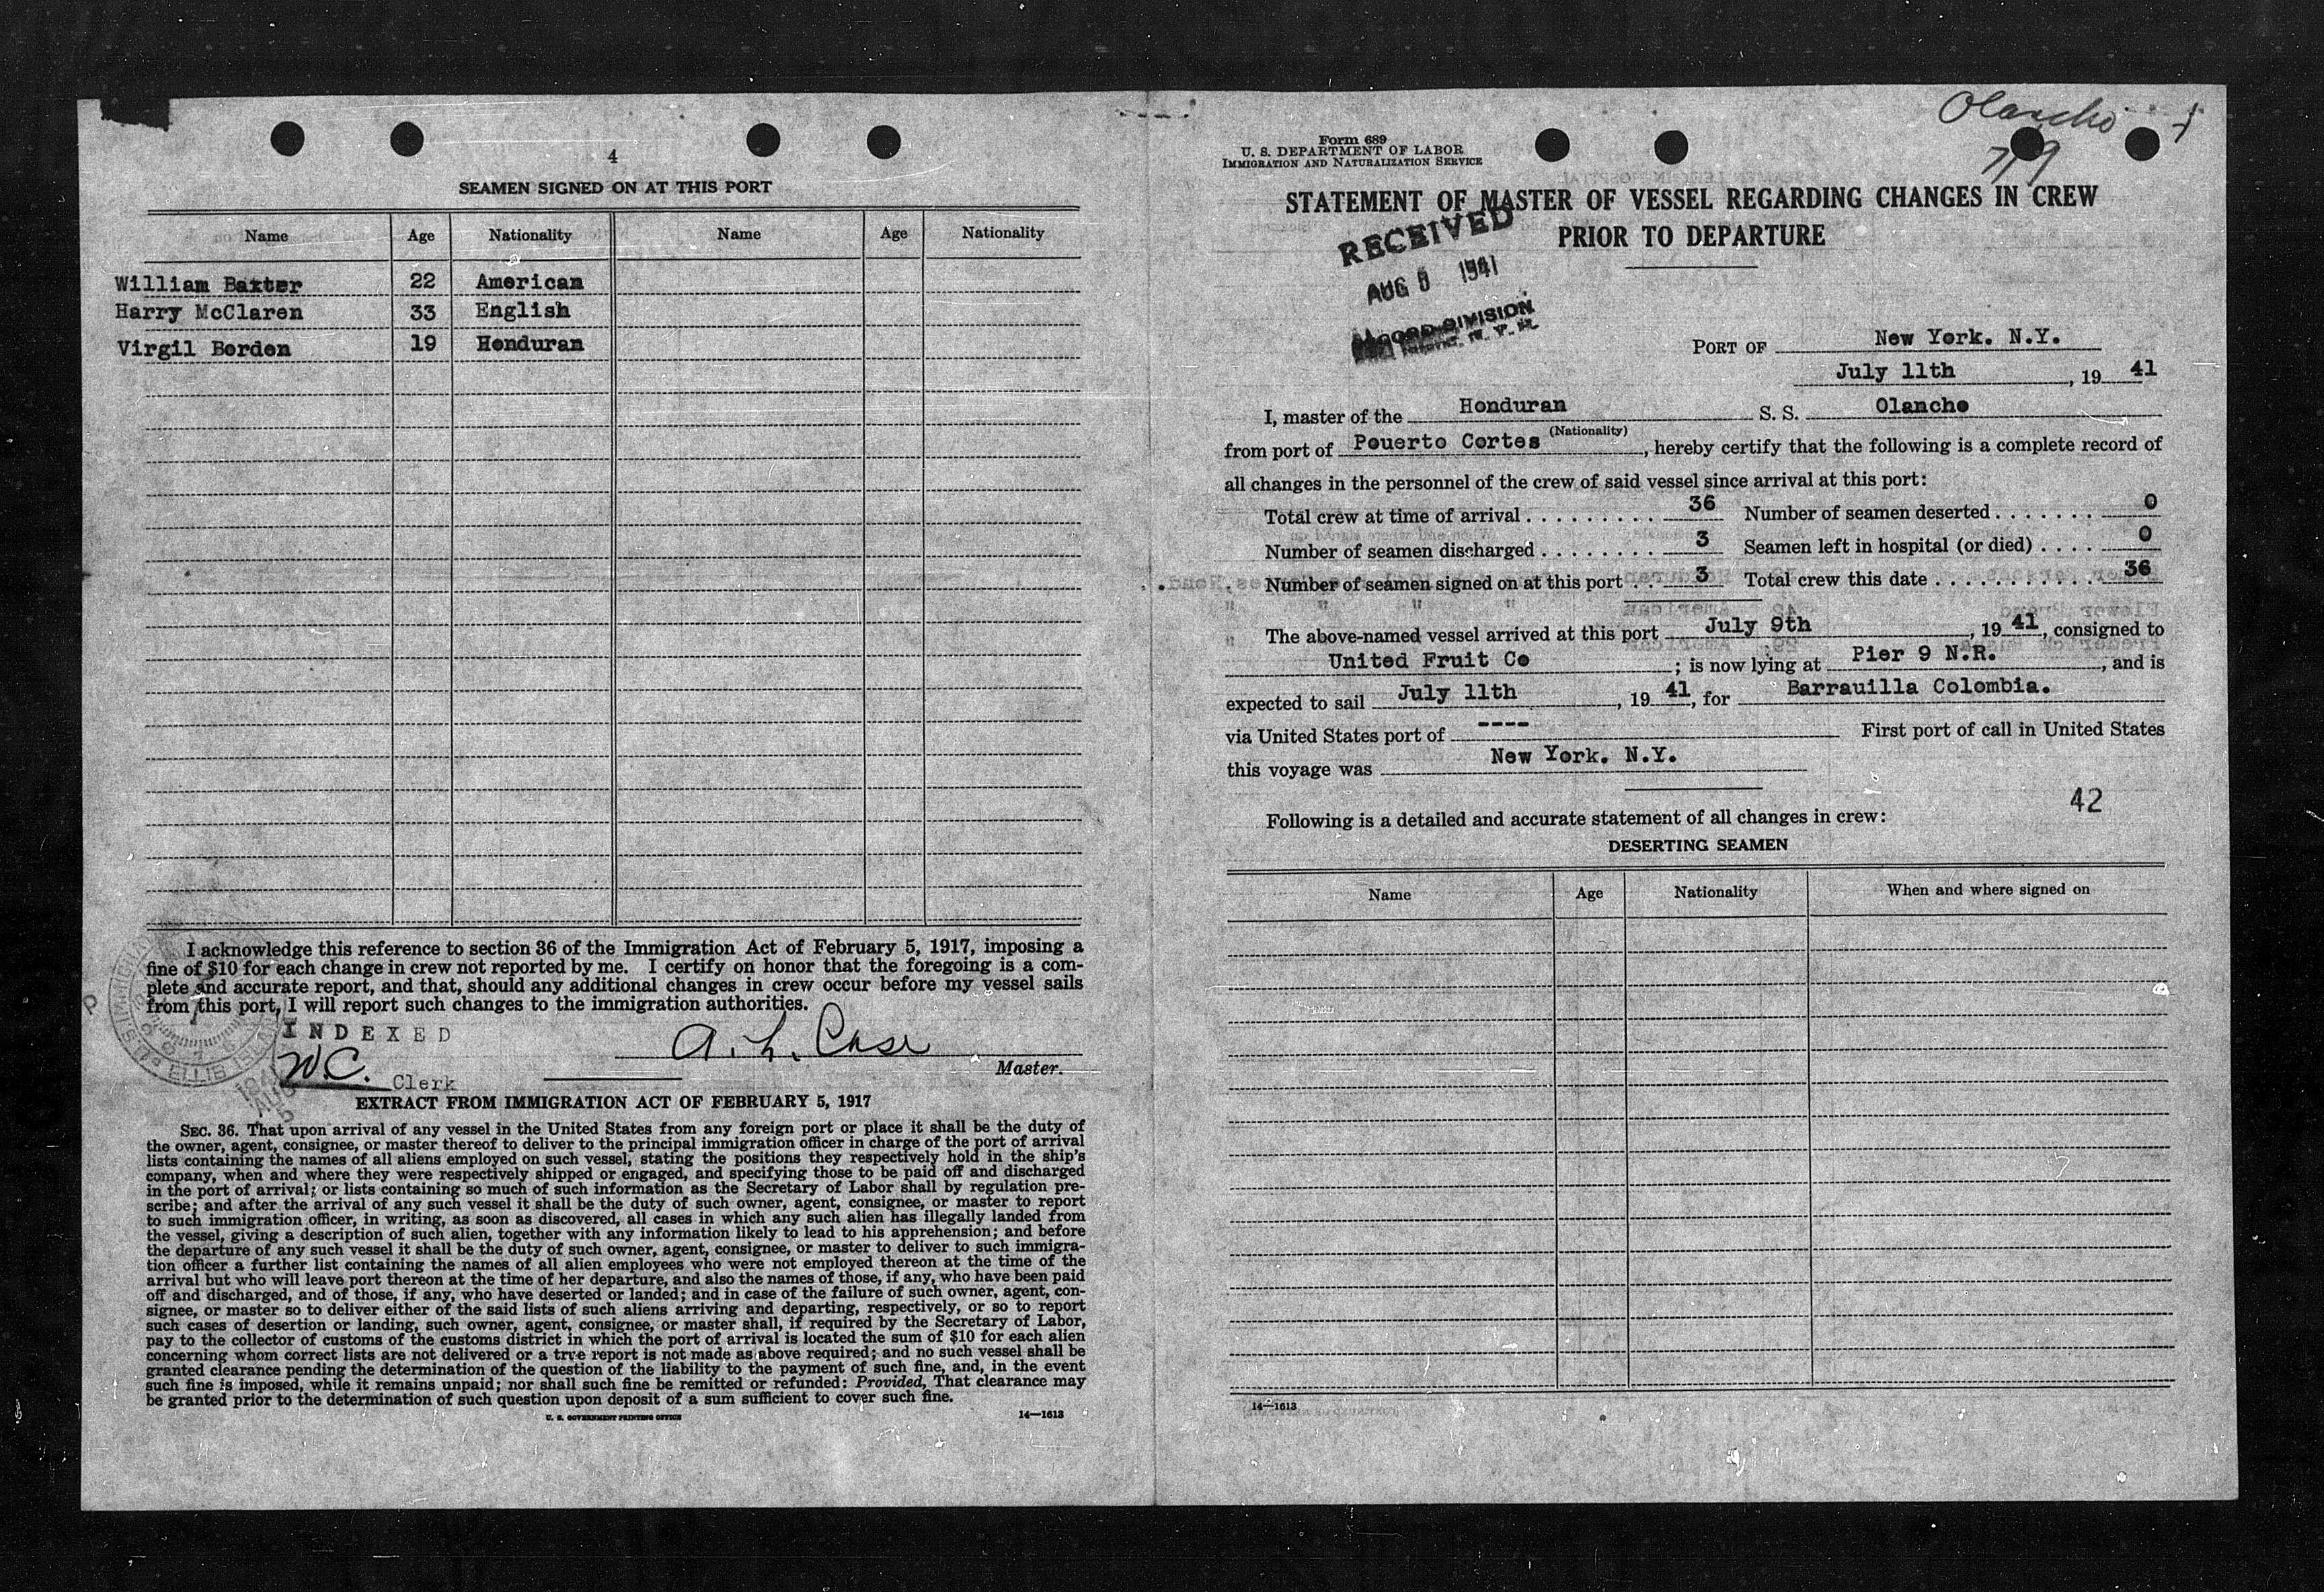 4
SEAMEN SIGNED ON AT THIS PORT
Name Age Nationality Name Age Nationality
William Baxter 22 American
Harry McClaren 33 English
Virgil Borden 19 Honduran
I acknowledge this reference to section 36 of the Immigration Act of February 5, 1917, imposing a
fine of $10 for each change in crew not reported by me. I certify on honor that the foregoing is a com-
plete and accurate report, and that, should any additional changes in crew occur before my vessel sails
from this port, I will report such changes to the immigration authorities.
INDEXED
W.C. Clerk
A. L. Case
Master.
EXTRACT FROM IMMIGRATION ACT OF FEBRUARY 5, 1917
SEC. 36. That upon arrival of any vessel in the United States from any foreign port or place it shall be the duty of
the owner, agent, consignee, or master thereof to deliver to the principal immigration officer in charge of the port of arrival
lists containing the names of all aliens employed on such vessel, stating the positions they respectively hold in the ship's
company, when and where they were respectively shipped or engaged, and specifying those to be paid off and discharged
in the port of arrival; or lists containing so much of such information as the Secretary of Labor shall by regulation pre-
scribe; and after the arrival of any such vessel it shall be the duty of such owner, agent, consignee, or master to report
to such immigration officer, in writing, as soon as discovered, all cases in which any such alien has illegally landed from
the vessel, giving a description of such alien, together with any information likely to lead to his apprehension; and before
the departure of any such vessel it shall be the duty of such owner, agent, consignee, or master to deliver to such immigra-
tion officer a further list containing the names of all alien employees who were not employed thereon at the time of the
arrival but who will leave port thereon at the time of her departure, and also the names of those, if any, who have been paid
off and discharged, and of those, if any, who have deserted or landed; and in case of the failure of such owner, agent, con-
signee, or master so to deliver either of the said lists of such aliens arriving and departing, respectively, or so to report
such cases of desertion or landing, such owner, agent, consignee, or master shall, if required by the Secretary of Labor,
pay to the collector of customs of the customs district in which the port of arrival is located the sum of $10 for each alien
concerning whom correct lists are not delivered or a true report is not made as above required; and no such vessel shall be
granted clearance pending the determination of the question of the liability to the payment of such fine, and, in the event
such fine is imposed, while it remains unpaid; nor shall such fine be remitted or refunded: Provided, That clearance may
be granted prior to the determination of such question upon deposit of a sum sufficient to cover such fine.
U. S. GOVERNMENT PRINTING OFFICE 14—1613
Olancho
7/9
Form 689
U. S. DEPARTMENT OF LABOR
IMMIGRATION AND NATURALIZATION SERVICE
STATEMENT OF MASTER OF VESSEL REGARDING CHANGES IN CREW
PRIOR TO DEPARTURE
RECEIVED
AUG 8 1941
RECORD DIVISION
PORT OF New York. N.Y.
July 11th, 19 41
I, master of the Honduran S. S. Olancho
(Nationality)
from port of Pouerto Cortes, hereby certify that the following is a complete record of
all changes in the personnel of the crew of said vessel since arrival at this port:
Total crew at time of arrival 36 Number of seamen deserted 0
Number of seamen discharged 3 Seamen left in hospital (or died) 0
Number of seamen signed on at this port 3 Total crew this date 36
The above-named vessel arrived at this port July 9th, 19 41, consigned to
United Fruit Co; is now lying at Pier 9 N.R., and is
expected to sail July 11th, 19 41, for Barrauilla Colombia.
via United States port of ---- First port of call in United States
this voyage was New York. N.Y.
42
Following is a detailed and accurate statement of all changes in crew:
DESERTING SEAMEN
Name Age Nationality When and where signed on
14—1613